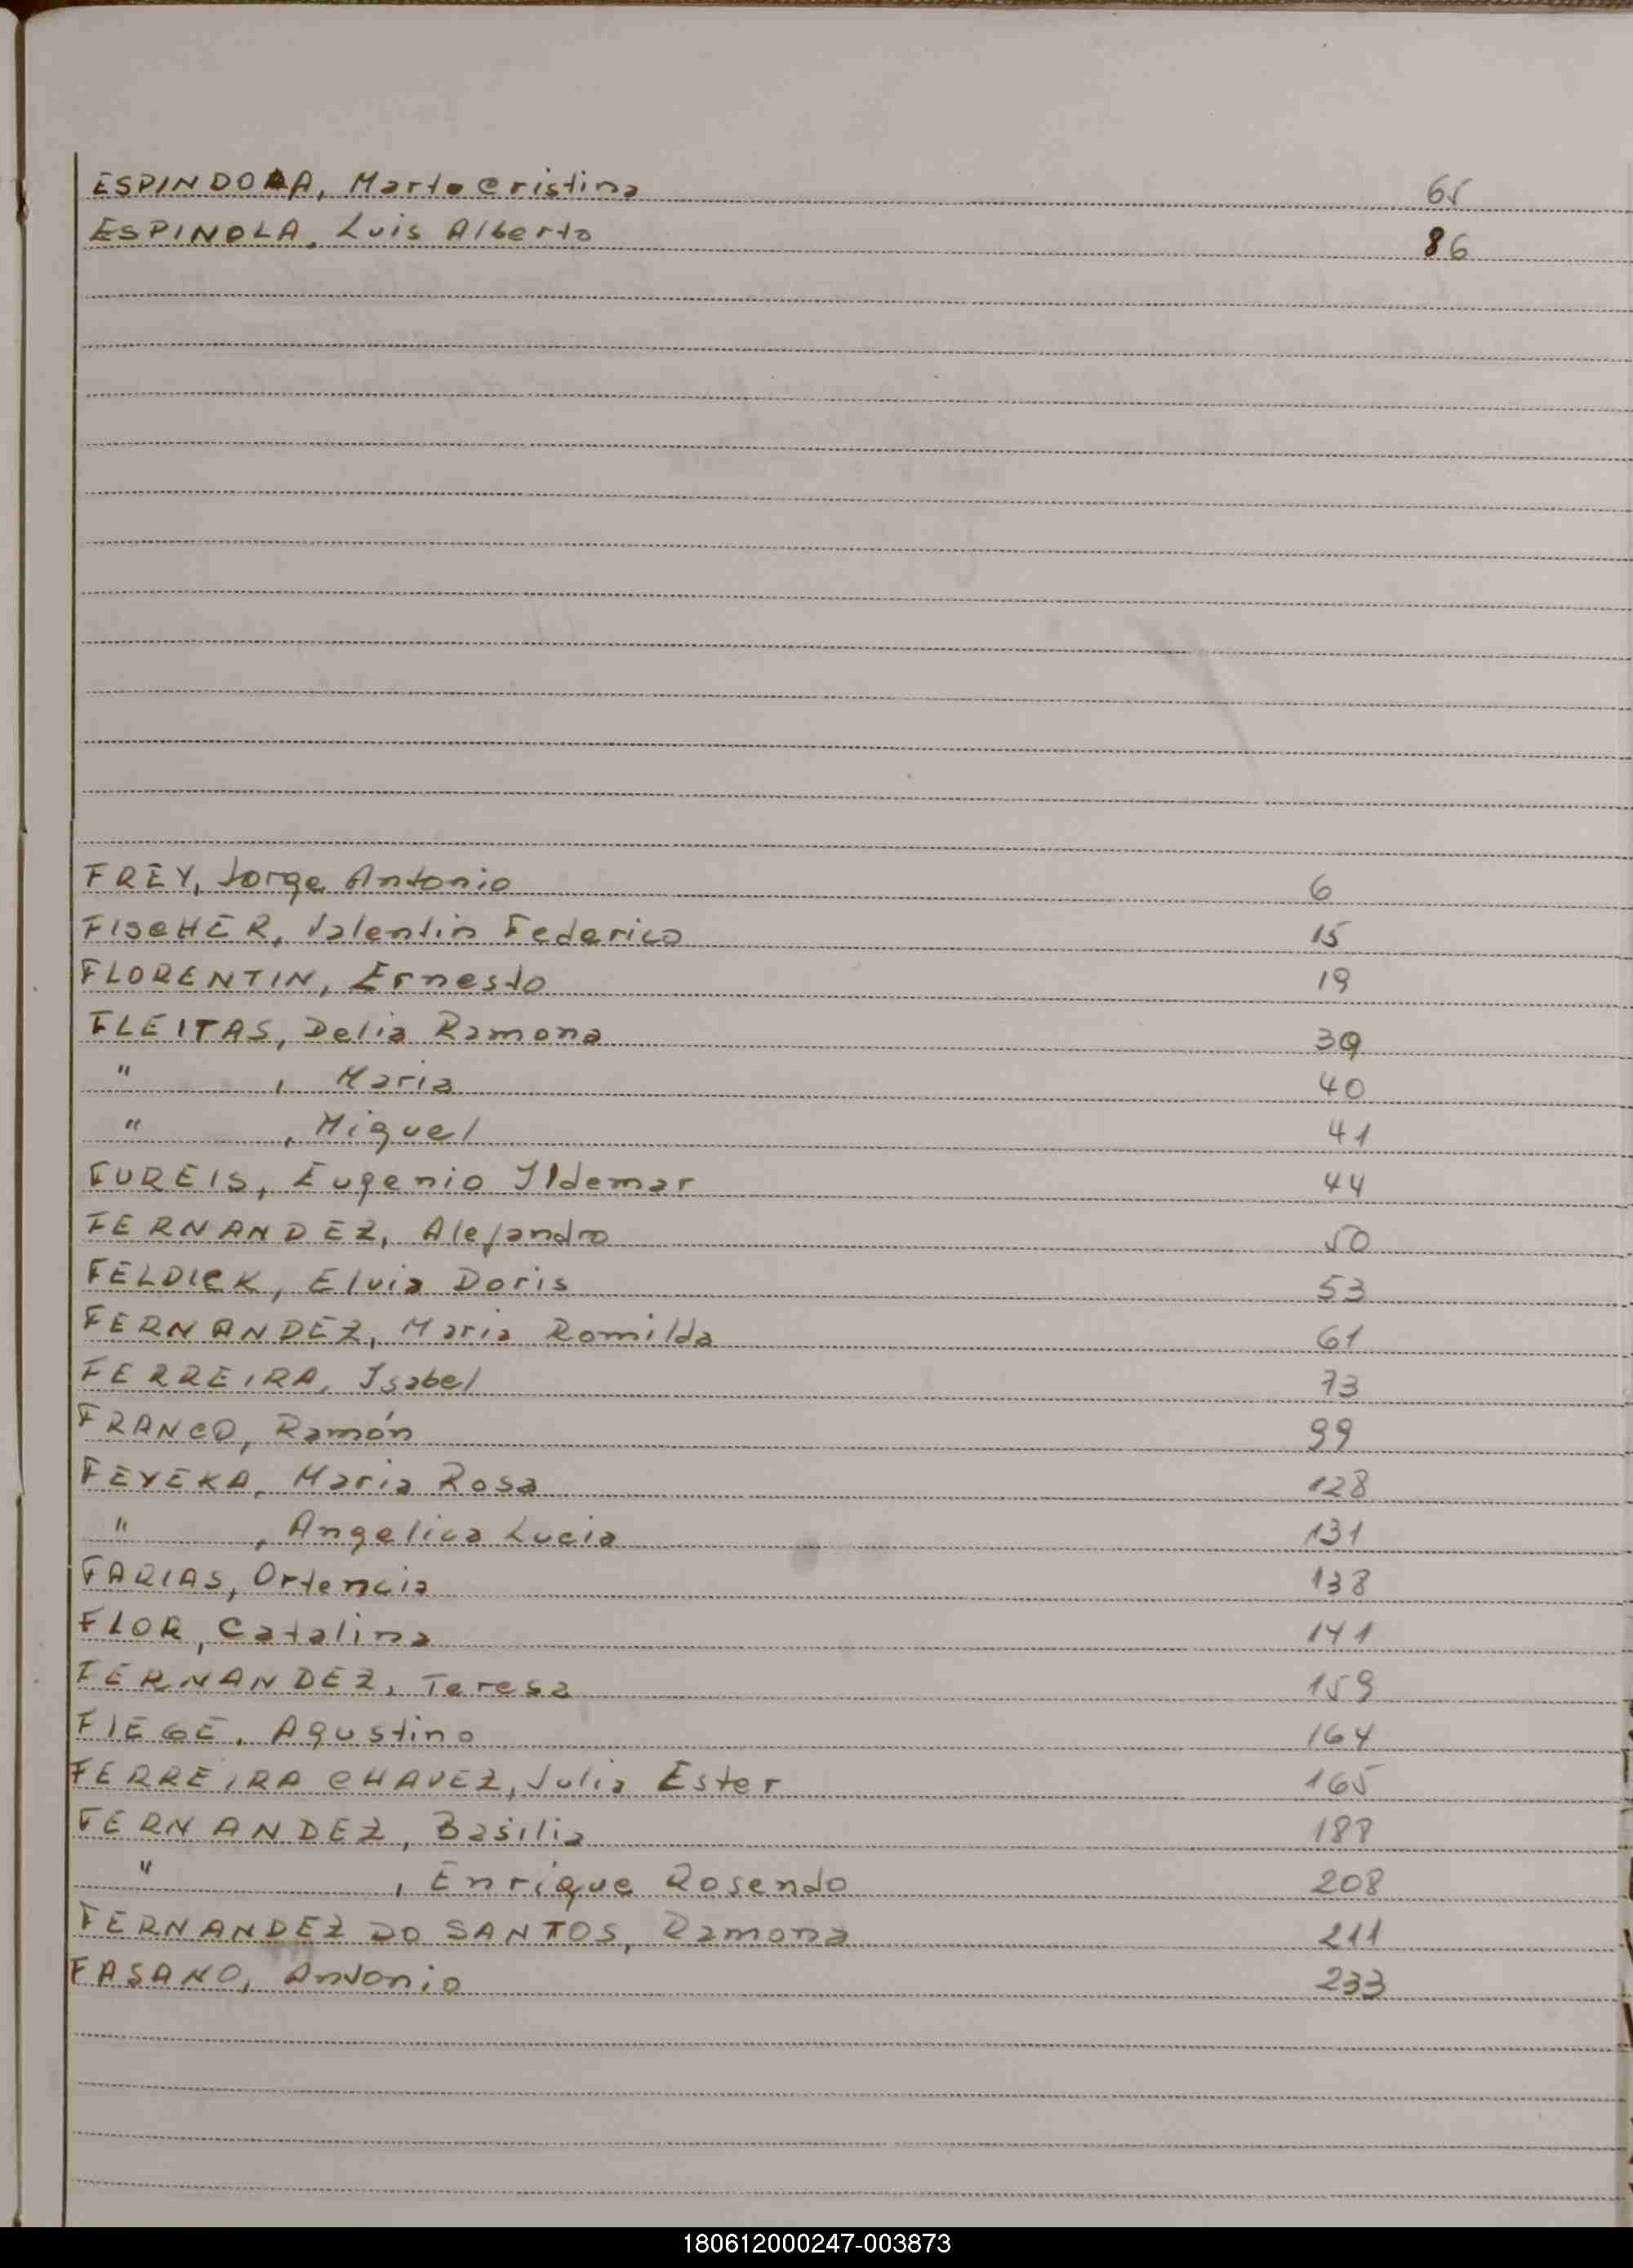 ESPINDOLA, Marta Cristina 65
ESPINOLA, Luis Alberto 86
FREY, Jorge Antonio 6
FISCHER, Valentin Federico 15
FLORENTIN, Ernesto 19
FLEITAS, Delia Ramona 39
" , Maria 40
" , Miguel 41
FUREIS, Eugenio Ildemar 44
FERNANDEZ, Alejandro 50
FELDICK, Elvia Doris 53
FERNANDEZ, Maria Romilda 61
FERREIRA, Isabel 73
FRANCO, Ramón 99
FEYEKA, Maria Rosa 128
" , Angelica Lucia 131
FARIAS, Ortencia 138
FLOR, Catalina 141
FERNANDEZ, Teresa 159
FIEGE, Agustino 164
FERREIRA CHAVEZ, Julia Ester 165
FERNANDEZ, Basilia 188
" , Enrique Rosendo 208
FERNANDEZ DO SANTOS, Ramona 211
FASANO, Antonio 233
180612000247-003873